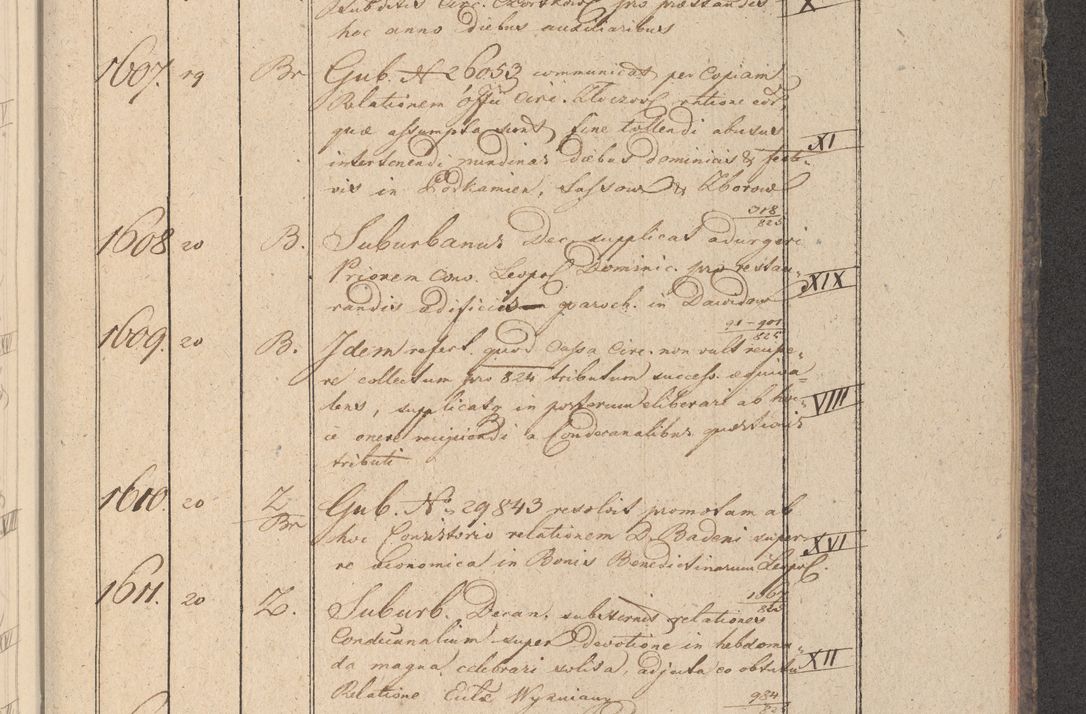 subditis Circ. Czortkow pro præstandis X
hoc anno diebus auxiliaribus
1607. 19 Br Gub. N 26053 communicat per Copiam
Relationem offii Circ. Zloczov ratione eor,
quæ assumpta sunt, fine tollendi abusus XI
intertenendi nundinas diebus dominicis & festi-
vis in Podkamien, Sassow & Zborow
318/825
1608 20 B. Suburbanus Dec. supplicat adurgeri
Priorem Conv. Leopol Dominic. pro restau- XIX
randis ædificiis paroch. in Dawidow
91-901/825
1609. 20 B. Idem refert quod Cassa Circ. non vult recipe-
re collectum pro 824 tributum success. æquiva-
lens, supplicat in posterum liberari ab hoc- VIII
ce onere recipiendi a Condecanalibus quæstionis
tributi
1610. 20 Z/Br Gub. No 29843 resolvit promotam ab
hoc Consistorio relationem D. Badeni super- XVI
re œconomica in Bonis Benedictinarum Leopol.
1067/825
1611. 20 Z. Suburb. Decan. substernit relationes
Condecanalium super devotione in hebdoma-
da magna celebrari solita, adjecta eo obtutu XII
Relatione Wyzniany
984/825